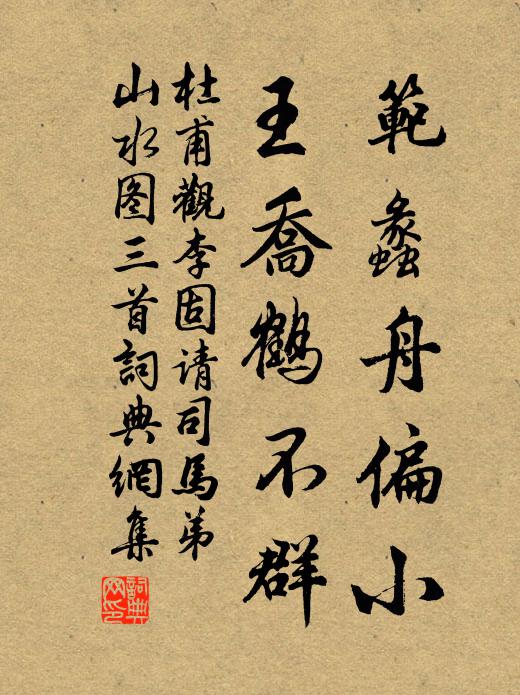 範蠡舟偏小
王喬鶴不群
杜甫觀李固请司馬弟
山水图三首詞典網集
詞典网印